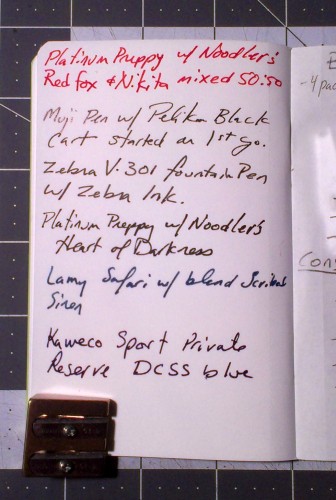 Platinum Preppy w/ Noodler's
Red fox & Nikita mixed 50:50
Muji Pen w/ Pelikan Black
Cart started on 1st go.
Zebra V-301 fountain Pen
w/ Zebra Ink.
Platinum Preppy w/ Noodler's
Heart of Darkness
Lamy Safari w/ blend
Siren
Kaweco Sport Private
Reserve DCSS blue
- 4